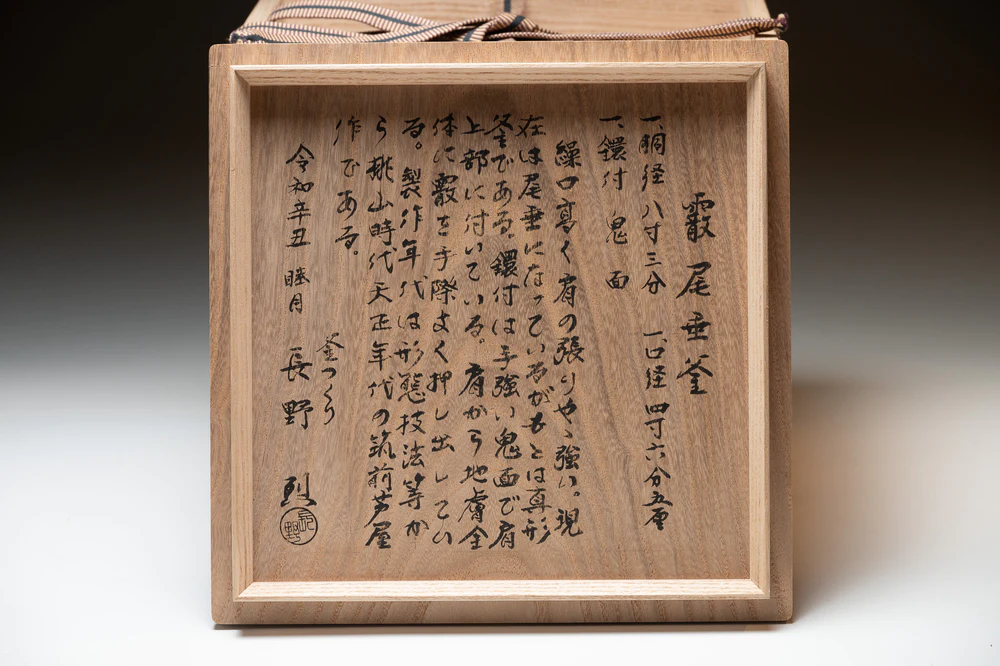 霰尾垂釜
一、胴径 八寸三分 一、口径 四寸六分五厘
一、鐶付 鬼面
繰口高く肩の張りやゝ強い。現
在は尾垂になっているがもとは真形
釜である。鐶付は手強い鬼面で肩
上部に付いている。肩から地膚全
体に霰を手際よく押し出してい
る。製作年代は形態技法等か
ら桃山時代天正年代の筑前芦屋
作である。
令和辛丑 睦月
釜つくり
長野 烈
長野